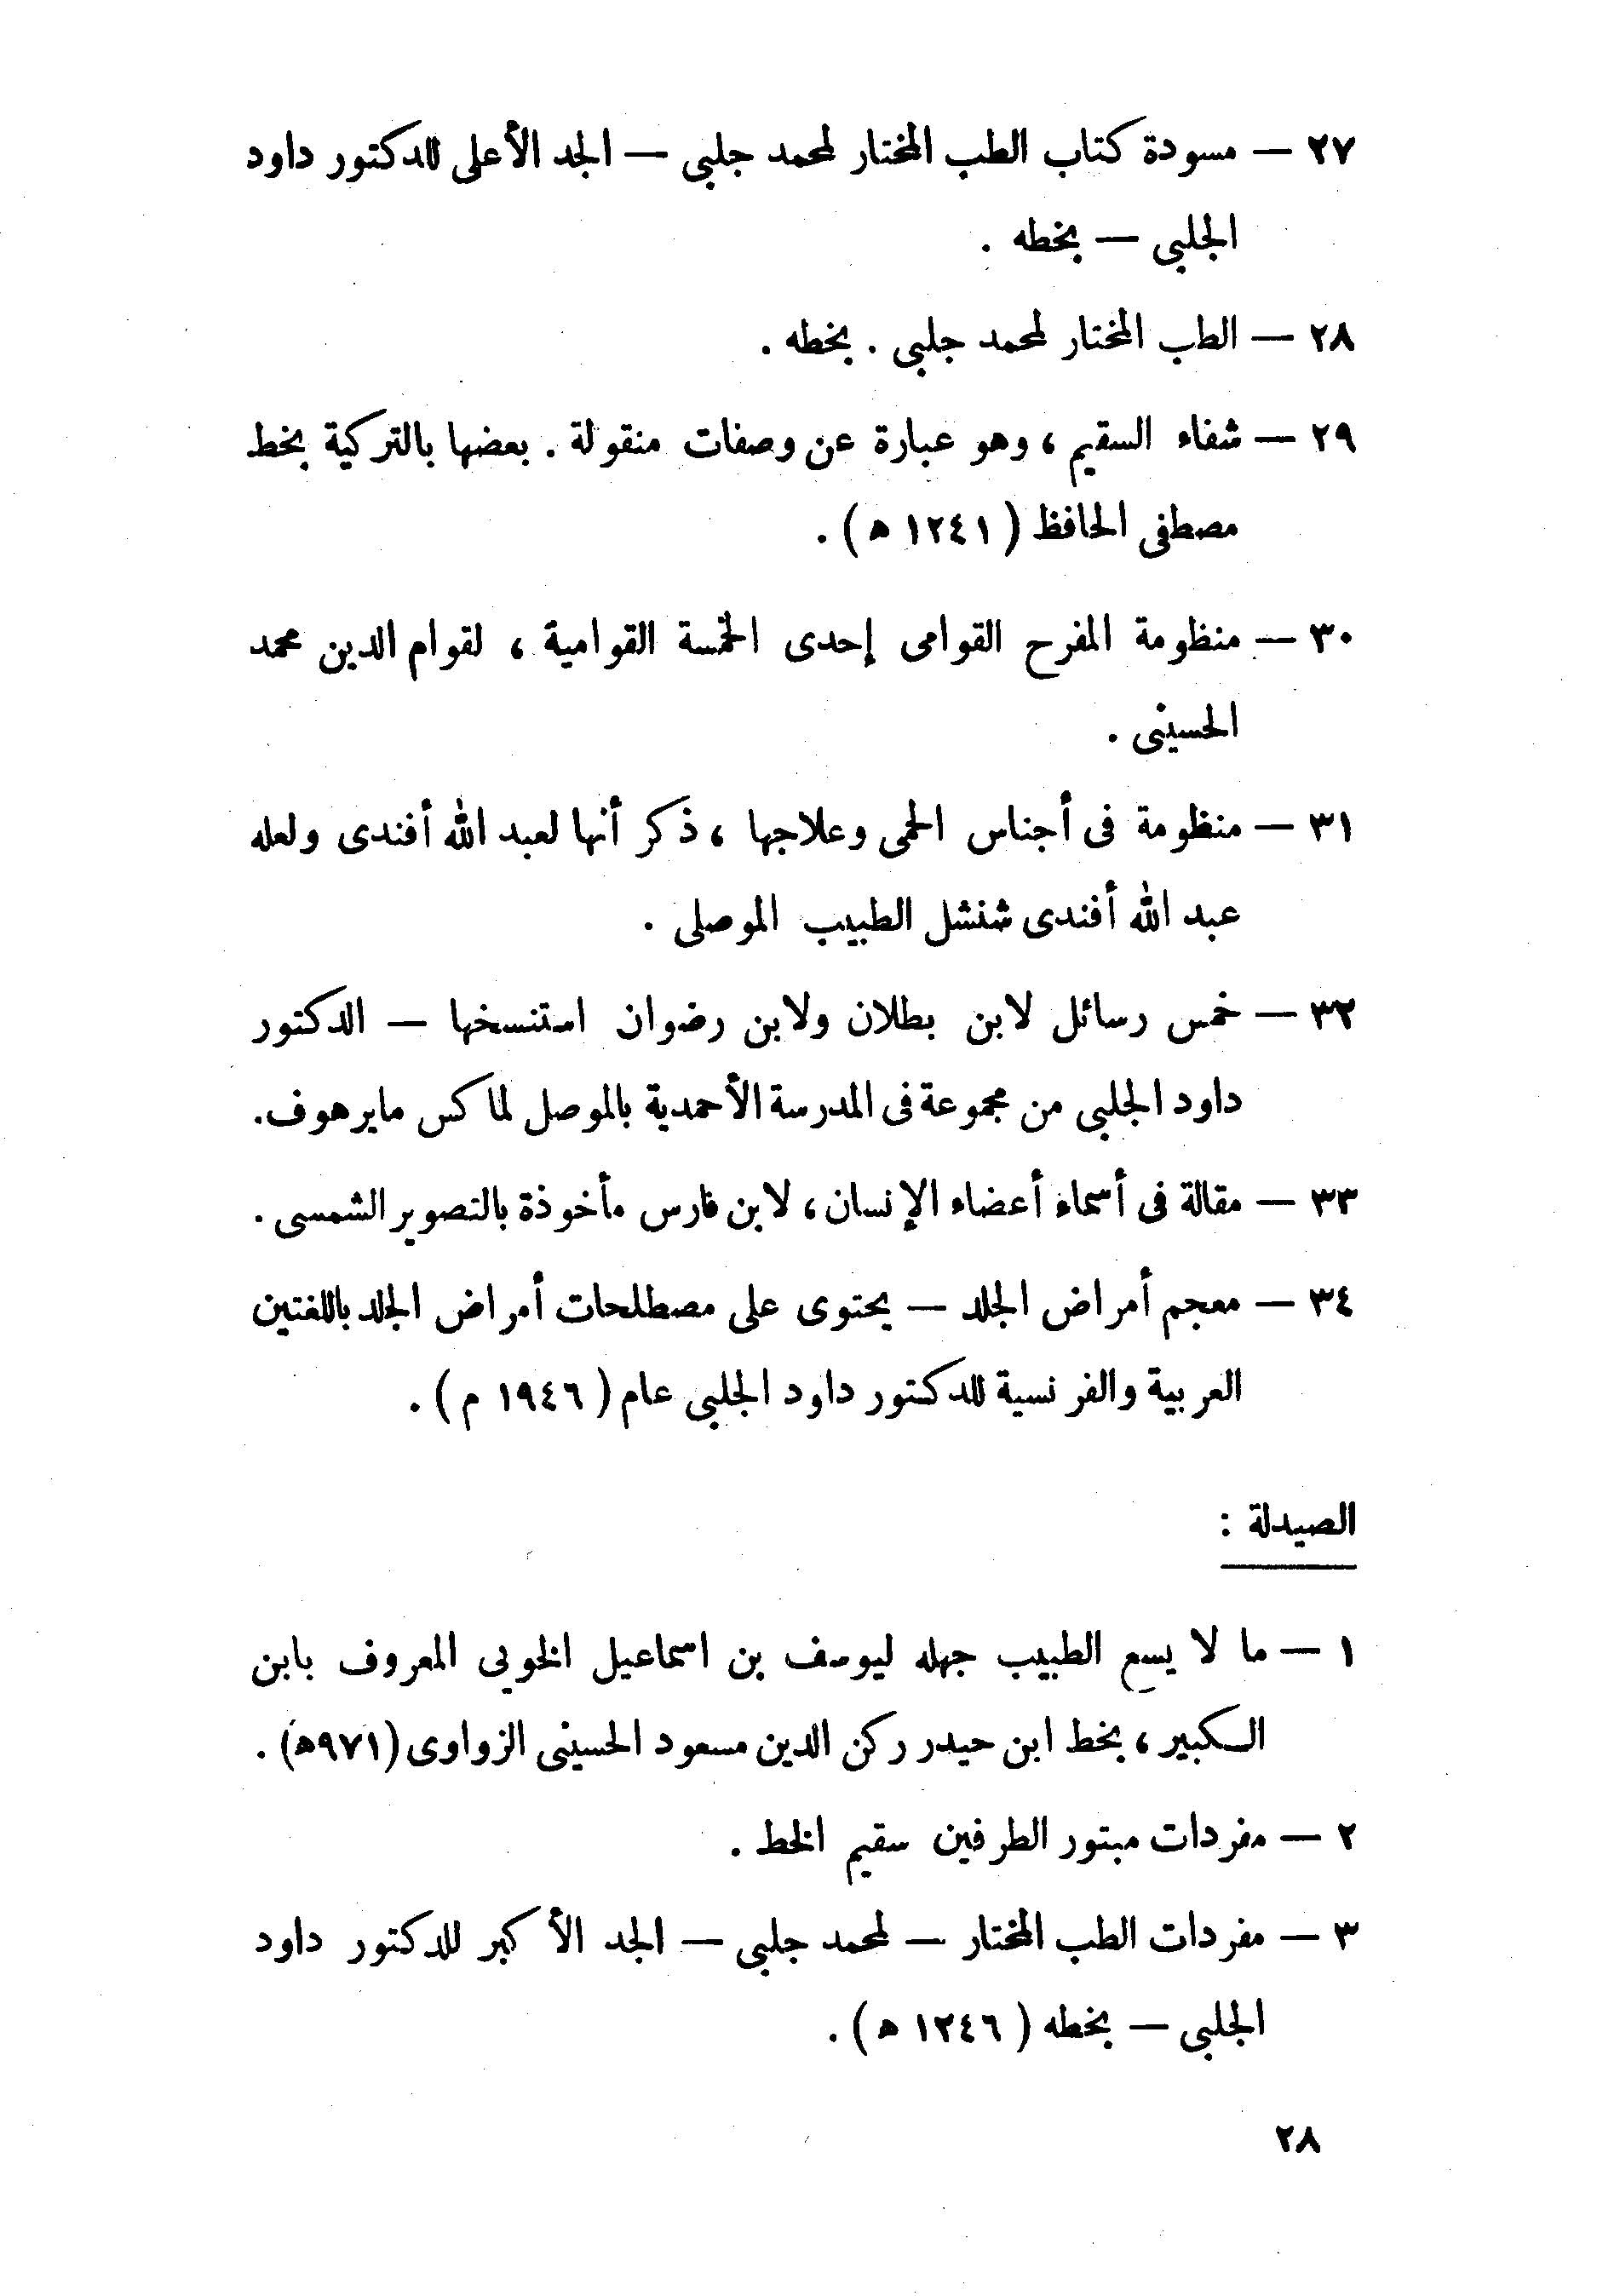 ٢٧ — مسودة كتاب الطب المختار لمحمد جلبى — الجد الأعلى للدكتور داود
الجلبى — بخطه .
٢٨ — الطب المختار لمحمد جلبى . بخطه .
٢٩ — شفاء السقيم ، وهو عبارة عن وصفات منقولة . بعضها بالتركية بخط
مصطفى الحافظ ( ١٢٤١ ه ) .
٣٠ — منظومة المفرح القوامى إحدى الخمسة القوامية ، لقوام الدين محمد
الحسينى .
٣١ — منظومة فى أجناس الحمى وعلاجها ، ذكر أنها لعبد الله أفندى ولعله
عبد الله أفندى شنشل الطبيب الموصلى .
٣٢ — خمس رسائل لابن بطلان ولابن رضوان استنسخها — الدكتور
داود الجلبى من مجموعة فى المدرسة الأحمدية بالموصل لماكس مايرهوف.
٣٣ — مقالة فى أسماء أعضاء الإنسان ، لابن فارس مأخوذة بالتصوير الشمسى .
٣٤ — معجم أمراض الجلد — يحتوى على مصطلحات أمراض الجلد باللغتين
العربية والفرنسية للدكتور داود الجلبى عام ( ١٩٤٦ م ) .
الصيدلة :
١ — ما لا يسع الطبيب جهله ليوسف بن اسماعيل الخويى المعروف بابن
الكبير ، بخط ابن حيدر ركن الدين مسعود الحسينى الزواوى (٩٧١ه) .
٢ — مفردات مبتور الطرفين سقيم الخط .
٣ — مفردات الطب المختار — لمحمد جلبى — الجد الأكبر للدكتور داود
الجلبى — بخطه ( ١٢٤٦ ه ) .
٢٨